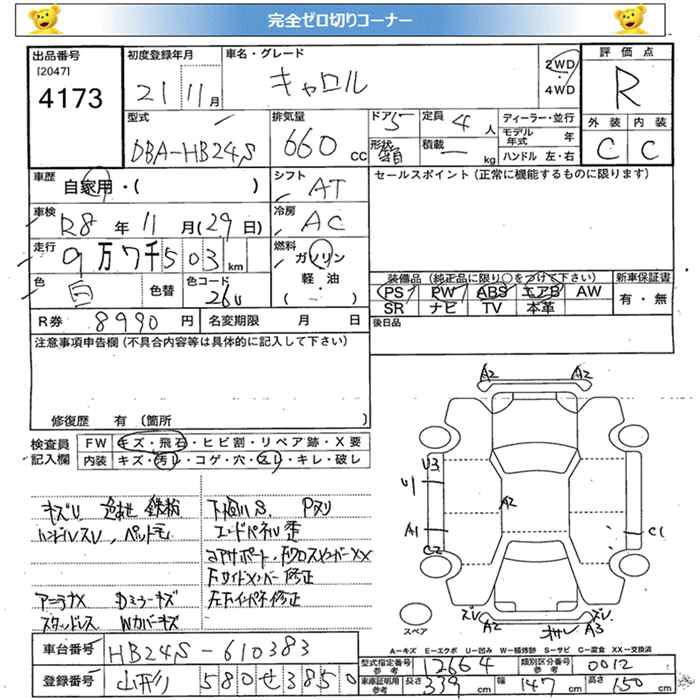 完全ゼロ切りコーナー
出品番号
[2047]
4173
初度登録年月
21 11月
車名・グレード
キャロル
2WD
・
4WD
評価点
R
外装 内装
C C
型式
DBA-HB24S
排気量
660 cc
ドア 5
形状
定員 4 人
積載 ー kg
ディーラー・並行
モデル年式 年
ハンドル 左・右
車歴
自家用・( )
シフト AT
セールスポイント(正常に機能するものに限ります)
車検
R8年11月(29日)
冷房 AC
走行
9万7千503km
燃料
ガソリン
軽・油
( ・ )
色
白
色替
色コード
26U
装備品(純正品に限り○をつけて下さい)
新車保証書
PS PW ABS エアB AW
SR ナビ TV 本革
有・無
R券 8990円
名変期限 月 日
後日品
注意事項申告欄(不具合内容等は具体的に記入して下さい)
修復歴 有(箇所 )
検査員
記入欄
FW キズ・飛石・ヒビ割・リペア跡・X要
内装 キズ・汚レ・コゲ・穴・スレ・キレ・破レ
キズU 鉄粉
ハンドルスレ、
下廻りS、Pヌリ
エンドパネル歪
コアサポート・FクロスメンバーXX
Fサイドメンバー修正
左Fインパネ修正
アンテナX Dミラーキズ
スタッドレス Wカバーキズ
A2 A2
U3
U1
A2
A1
C2
C1
スペア
A2
A3
A=キズ E=エクボ U=凹み W=補修跡 S=サビ C=腐食 XX=交換済
車台番号 HB24S-610383
登録番号 山形 580せ3850
型式指定番号
参考
12664
類別区分番号
参考
0012
車庫証明用
参考
長さ 339 cm
幅 147 cm
高さ 150 cm